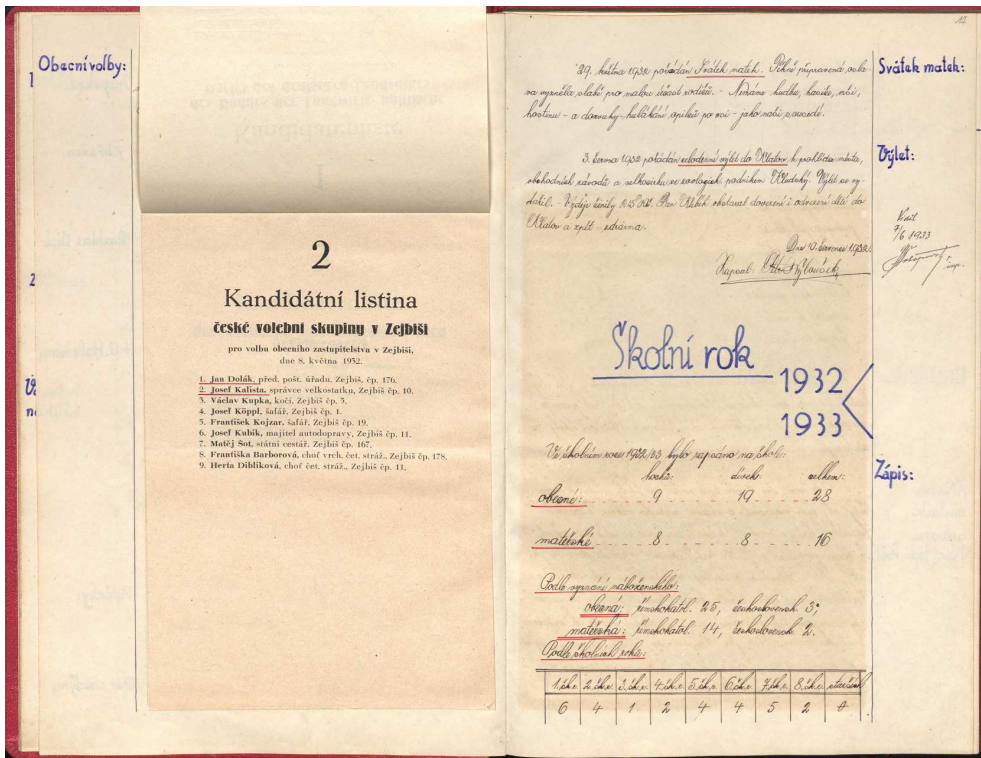 Obecní volby:
2
Kandidátní listina
české volební skupiny v Zejbiši
pro volbu obecního zastupitelstva v Zejbiši,
dne 8. května 1932.
1. Jan Dolák, před. pošt. úřadu, Zejbiš, čp. 176.
2. Josef Kalista, správce velkostatku, Zejbiš čp. 10.
3. Václav Kupka, kočí, Zejbiš čp. 3.
4. Josef Köppl, šafář, Zejbiš čp. 1.
5. František Kojzar, šafář, Zejbiš čp. 19.
6. Josef Kubik, majitel autodopravy, Zejbiš čp. 11.
7. Matěj Šot, státní cestář, Zejbiš čp. 167.
8. Františka Barborová, choť vrch. čet. stráž., Zejbiš čp. 178.
9. Herta Diblíková, choť čet. stráž., Zejbiš čp. 11.
12
Svátek matek:
29. května 1932 pořádán Svátek matek. Pěkně připravená osla-
va vyzněla slabě pro malou účast rodičů. - Nemáme hudbu, hasiče,
hostinu - a donuly - hulákání opilců po vsi - jako naši sousedé.
Výlet:
3. června 1932 pořádán celodenní výlet do Klatov k prohlídce města,
obchodních závodů a zoologick. podnikem Kludský. Výlet se vy-
dařil. - Výdeje činily Pan obstaral dovezení i odvezení dětí do
Klatov a zpět - zdarma.
Dne 10. července 1932.
Zapsal:
Visit
7/6 1933
Školní rok
1932
1933
Zápis:
Ve školním roce 1932/33 bylo zapsáno na škole:
hochů: dívek: celkem:
obecné: 9 19 28
mateřské 8 8 16
Podle vyznání náboženského:
obecná: římskokatol. 25, československ. 3;
mateřská: římskokatol. 14, československ. 2.
Podle školních roků:
1. šk. r. 2. šk. r. 3. šk. r. 4. šk. r. 5. šk. r. 6. šk. r. 7. šk. r. 8. šk. r. starších
6 4 1 2 4 4 5 2